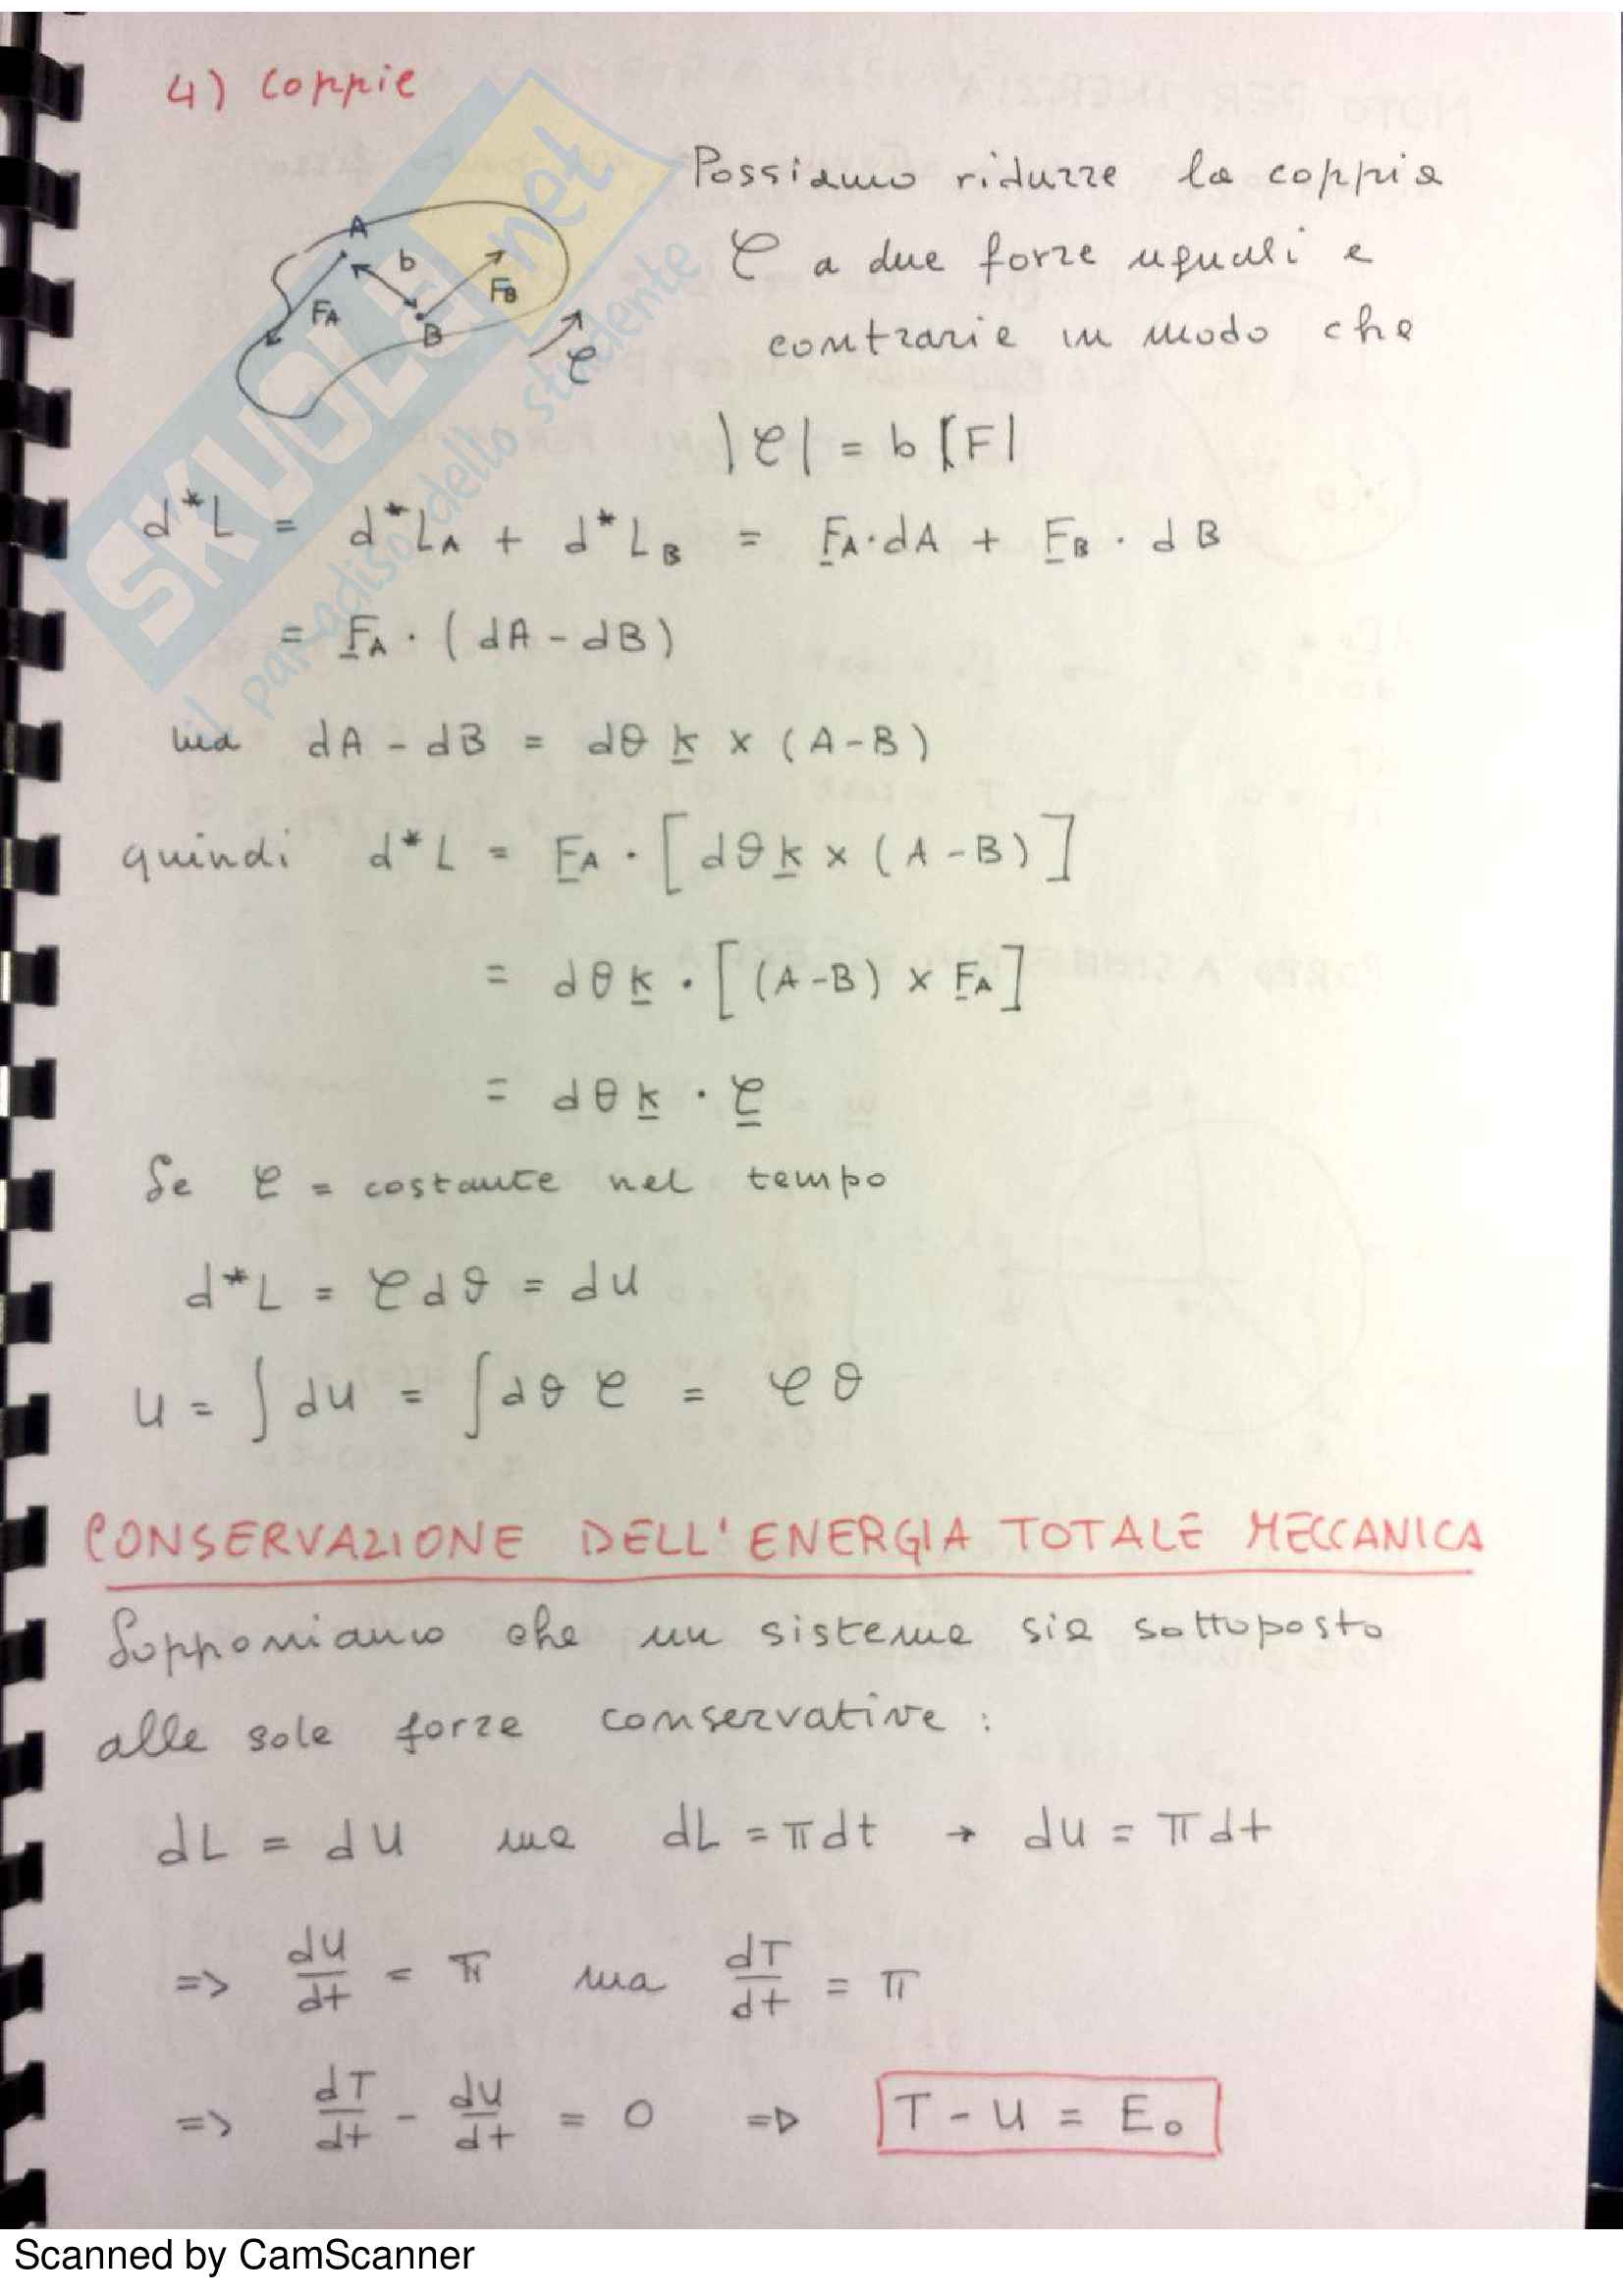 4) Coppie
Possiamo ridurre la coppia
𝒞 a due forze uguali e
contrarie in modo che
A
b
FA
FB
B
𝒞
|𝒞| = b |F|
d*L = d*LA + d*LB = FA·dA + FB·dB
= FA·(dA - dB)
ma dA - dB = dθ k × (A-B)
quindi d*L = FA·[dϑ k × (A-B)]
= dθ k · [(A-B) × FA]
= dθ k · 𝒞
Se 𝒞 = costante nel tempo
d*L = 𝒞dϑ = dU
U = ∫dU = ∫dθ 𝒞 = 𝒞θ
CONSERVAZIONE DELL'ENERGIA TOTALE MECCANICA
Sopponiamo che un sistema sia sottoposto
alle sole forze conservative :
dL = dU ma dL = πdt → dU = πdt
=> dU/dt = π ma dT/dt = π
=> dT/dt - dU/dt = 0 => T - U = E₀
SKUOLA.net
il paradiso dello studente
Scanned by CamScanner